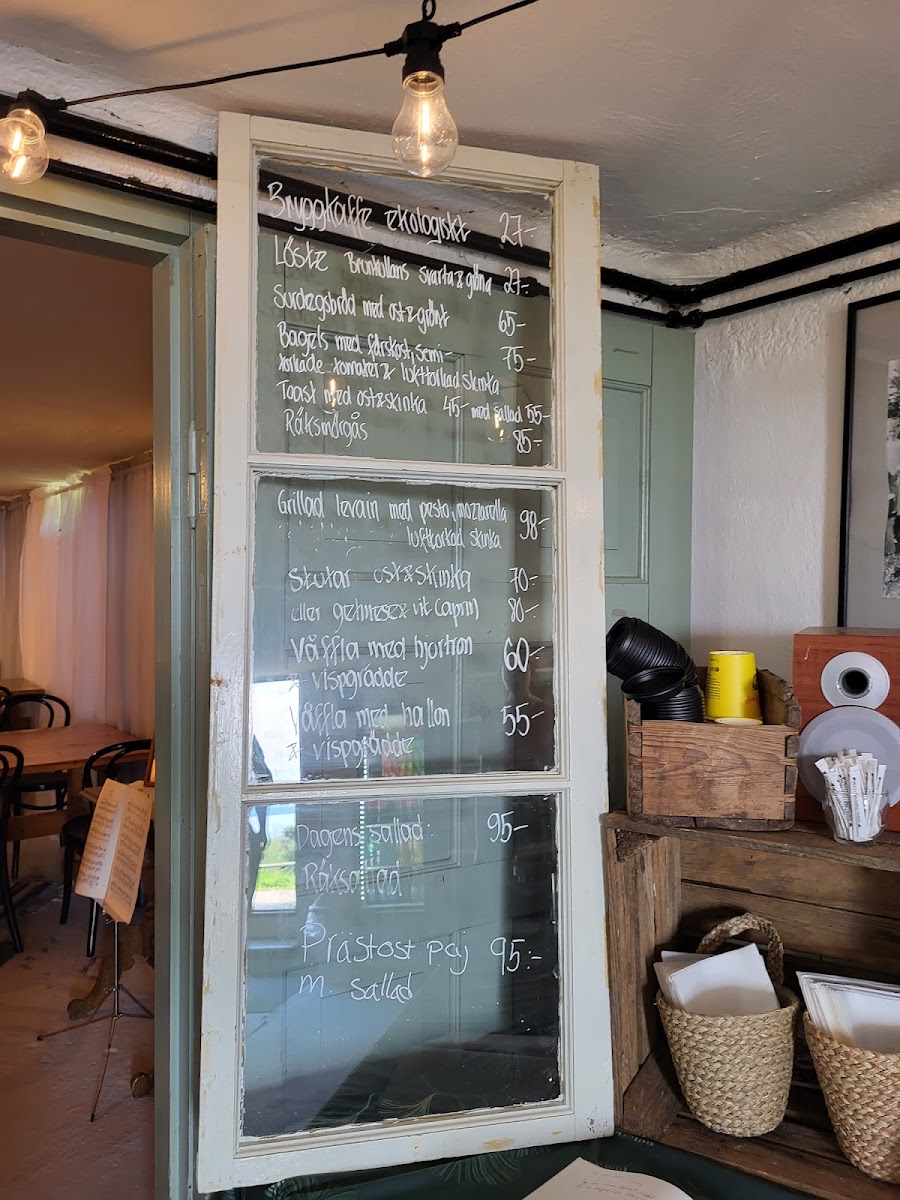 Bryggkaffe ekologiskt 27:-
Löste Brunkullans svarta & gröna 27:-
Surdegsbröd med ost & grönt 65:-
Bagels med färskost, semi- 75:-
torkade tomater & lufttorkad skinka
Toast med ost & skinka 45:- med sallad 55:-
Räksmörgås 85:-
Grillad levain med pesto, mozzarella 98:-
lufttorkad skinka
Stutar ost & skinka 70:-
eller getmesex vit Caprin 80:-
Våffla med hjortron 60:-
& vispgrädde
Våffla med hallon 55:-
& vispgrädde
Dagens sallad: 95:-
Räksallad
Prästost paj 95:-
m. sallad